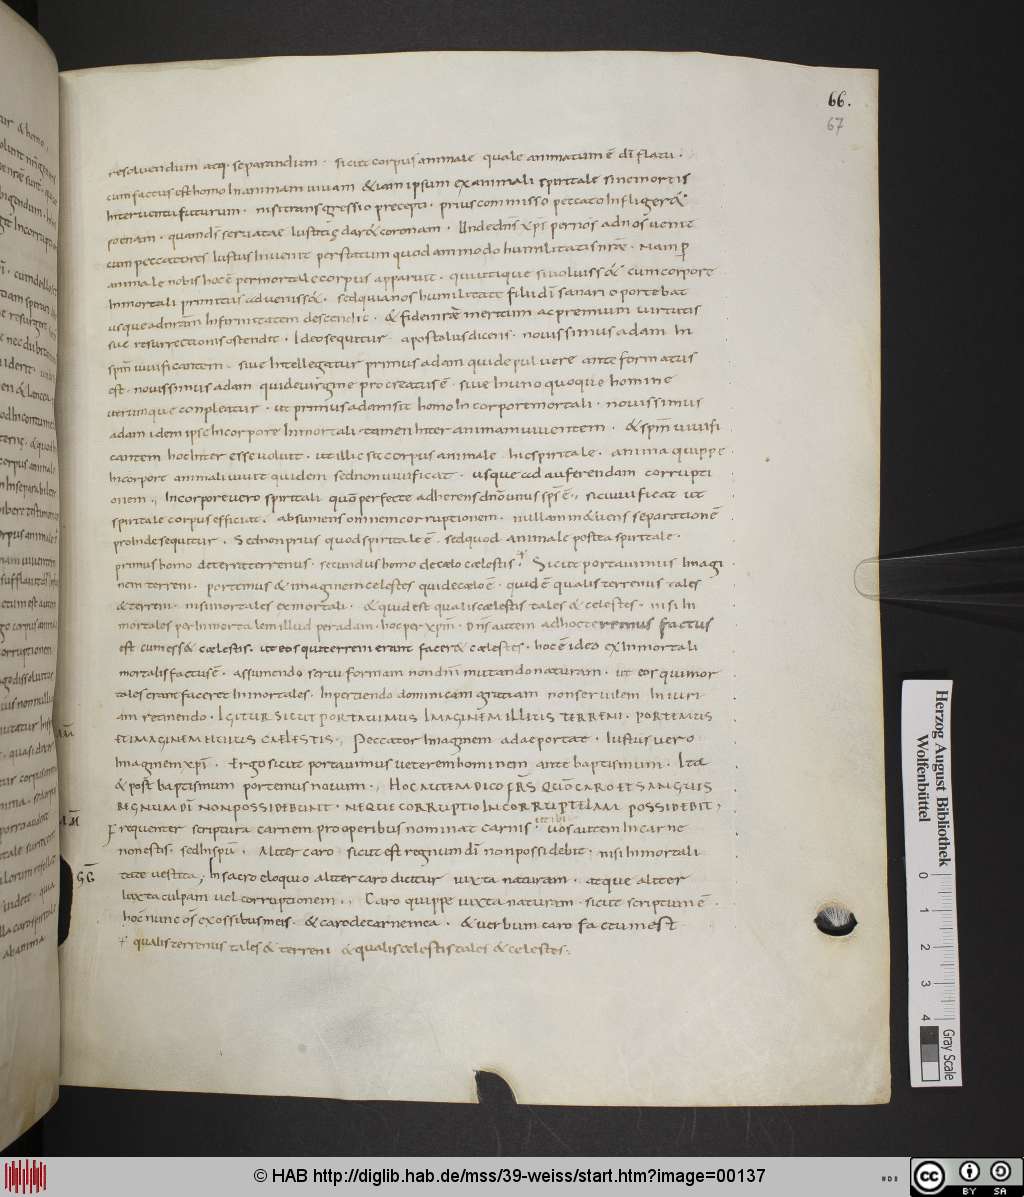 66.
67
resolvendum atq; separandum · sicut corpus animale quale animatum ē dī flatu ·
cum factus est homo In animam vivam & iam ipsum ex animali spiritale sine mortis
Interventu futurum · nisi transgressio precepti · prius commisso peccato Infliger&
poenam · quam dī servatae Iustitię dar& coronam · Unde dn̄s xp̄s per nos ad nos venit
cum peccatores Iustus Invenit per statum quodammodo humilitatis nrāe · Nam p
animale nobis hoc ē per mortale corpus apparuit · qui utique si voluiss& cum corpore
Inmortali primitus advenisset · sed quia nos humilitate filii dī sanari oportebat
usque ad nrām Infirmitatem descendit · & fidei nrāe meritum ac premium virtutis
sue resurrectionis ostendit · Ideo sequitur apostolus dicens · novissimus adam In
spm̄ vivificantem · sive Intellegatur primus adam qui de pulvere ante formatus
est · novissimus adam qui de virgine procreatus ē · sive In uno quoque homine
utrumque conpleatur · ut primus adam sit homo In corpore mortali · novissimus
adam idem ipse In corpore Inmortali · tamen Inter animam viventem · & spm̄ vivifi
cantem hoc Inter esse voluit · ut illic sit corpus animale hic spiritale · anima quippe
In corpore animali vivit quidem sed non vivificat · usque ad auferendam corrupti
onem ·, In corpore vero spiritali quō perfecte adherens dnō unus sps̄ ē ·, sic vivificat ut
spiritale corpus efficiat · absumens omnem corruptionem · nullam m&uens separationē
proinde sequitur · Sed non prius quod spiritale ē · sed quod animale postea spiritale ·
primus homo de terra terrenus · secundus homo de cælo cælestis · Sicut portavimus Imagi
nem terreni · portemus & imaginem celestes qui de cælo ē · quid ē qualis terrenus tales
& terreni · nisi mortales ex mortali · & quid est qualis cælestis tales & celestes · nisi In
mortales per Inmortalem illud per adam · hoc per xpm̄ · Dn̄s autem ad hoc terrenus factus
est cum ess& cælestis · ut eos qui terreni erant facer& cælestes · hoc ē ideo ex Inmortali
mortalis factus ē · assumendo servi formam non dnī mutando naturam · ut eos qui mor
tales erant faceret Inmortales · Inpertiendo dominicam gratiam non servilem Iniuri
am retinendo · IGITUR SICUT PORTAVIMUS IMAGINEM ILLIUS TERRENI · PORTEMUS
ET IMAGINEM HUIUS CAELESTIS ·, Peccator Imaginem adae portat · Iustus vero
Imaginem xpī · Ergo sicut portavimus veterem hominem ante baptismum · Ita
& post baptismum portemus novum ·, HOC AUTEM DICO FRS̄ QUŌ CARO ET SANGUIS
REGNUM DĪ NON POSSIDEBUNT · NEQUE CORRUPTIO INCORRUPTELAM POSSIDEBIT ,
Frequenter scriptura carnem pro operibus nominat carnis · ut ibi vos autem In carne
non estis · sed In spū · Aliter caro sicut est regnum dī non possidebit · nisi Inmortali
tate vestita ; In sacro eloquio aliter caro dicitur iuxta naturam · atque aliter
Iuxta culpam vel corruptionem ·, Caro quippe iuxta naturam · sicut scriptum ē ·
hoc nunc os ex ossibus meis · & caro de carne mea · & verbum caro factum est
qualis terrenus tales & terreni & qualis cælestis tales & celestes ·
Herzog August Bibliothek
Wolfenbüttel
0
1
2
3
4
Gray Scale
© HAB http://diglib.hab.de/mss/39-weiss/start.htm?image=00137
cc
BY
SA